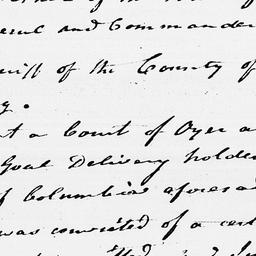 and Commander
riff of the County of
y.
at a Court of Oyer a
Goal Delivery holde
f Columbia aforesa
was convicted of a cert